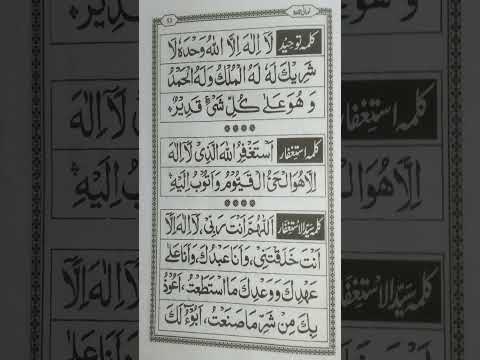 نورانی قاعدہ
کلمہ توحید لَا اِلٰهَ اِلَّا اللّٰهُ وَحْدَهٗ لَا
شَرِيْكَ لَهٗ لَهُ الْمُلْكُ وَلَهُ الْحَمْدُ
وَهُوَ عَلٰى كُلِّ شَيْءٍ قَدِيْرٌ
کلمہ استغفار اَسْتَغْفِرُ اللّٰهَ الَّذِيْ لَا اِلٰهَ
اِلَّا هُوَ الْحَيُّ الْقَيُّوْمُ وَاَتُوْبُ اِلَيْهِ
کلمہ سید الاستغفار اَللّٰهُمَّ اَنْتَ رَبِّيْ، لَا اِلٰهَ اِلَّا
اَنْتَ خَلَقْتَنِيْ، وَاَنَا عَبْدُكَ، وَاَنَا عَلٰى
عَهْدِكَ وَوَعْدِكَ مَا اسْتَطَعْتُ، اَعُوْذُ
بِكَ مِنْ شَرِّ مَا صَنَعْتُ، اَبُوْءُ لَكَ